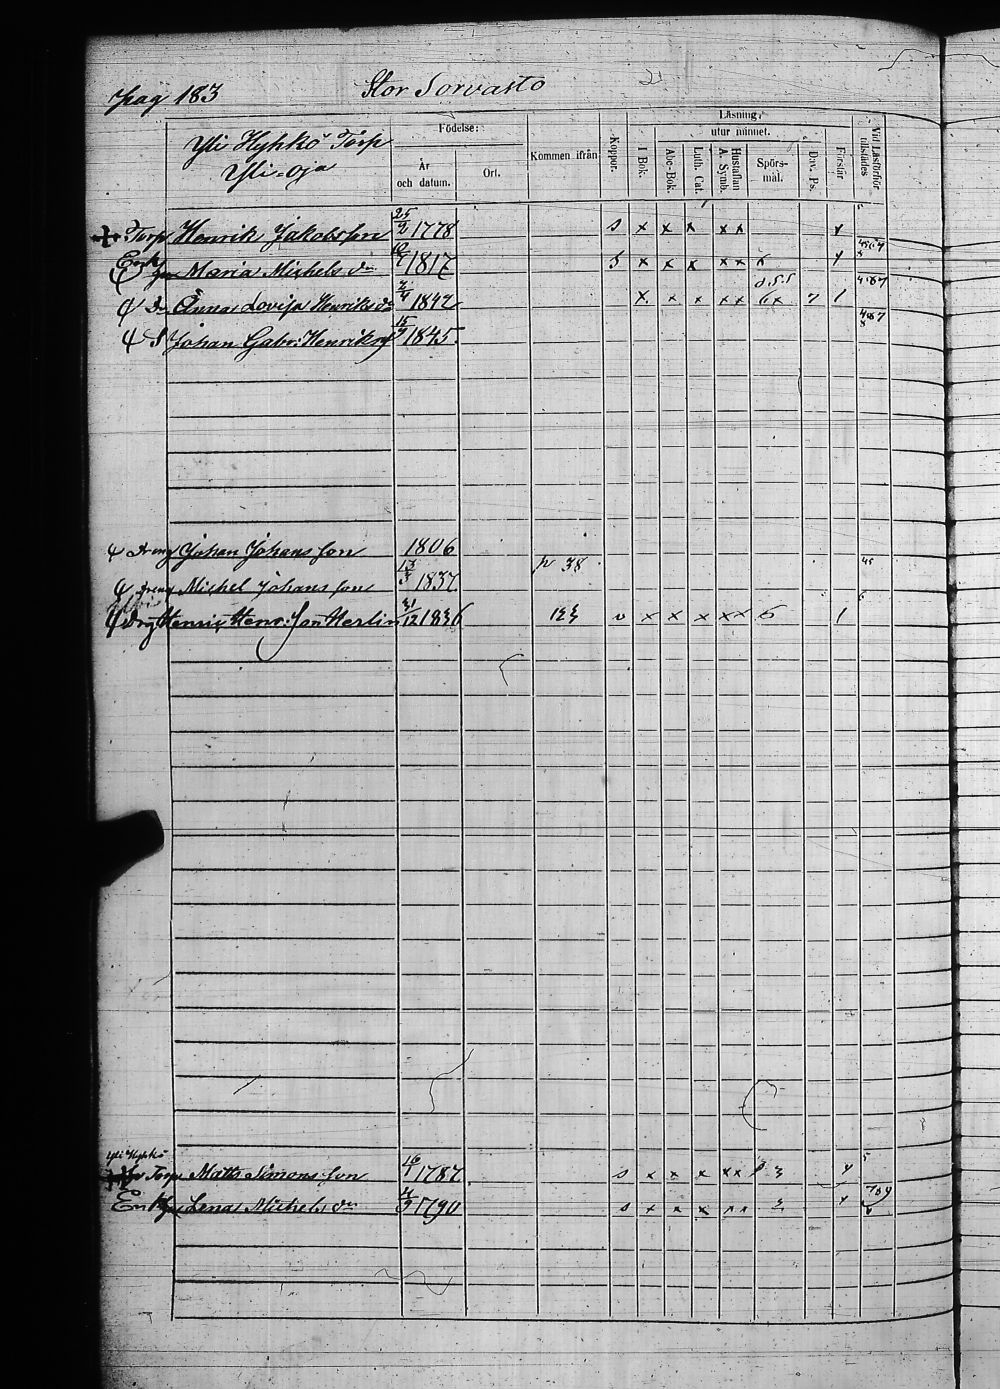 pag 183 Stor Sorvasto
Yli Hyhkö Torp
Yli-oja
Födelse:
År och datum.
Ort.
Kommen ifrån
Koppor.
Läsning:
utur minnet.
I Bok.
Abc-Bok.
Luth. Cat.
Hustaflan A. Symb.
Spörs-mål.
Dav. Ps.
Förstår
Vid Läsförhör tillstädes
Torp Henrik Jakobsson 25/2 1778 s x x x x x y
Enk Maria Michels dr 1817 s x x x x x x y
Dr Anna Lovisa Henriks dr 2/4 1842 x x x x x 6x 7 1
S Johan Gabr: Henriksson 1845
Dreng Johan Johansson 1806
Dreng Michel Johansson 13/3 1837 p 38 45
Drg Henrik Henr:son Herlin 31/12 1836 123 v x x x x x 6 1
Yli Hyhkö
Torp Matts Simonsson 16/1 1787 s x x x x x 3 y
Enk Lena Michels dr 1790 s x x x 3 y